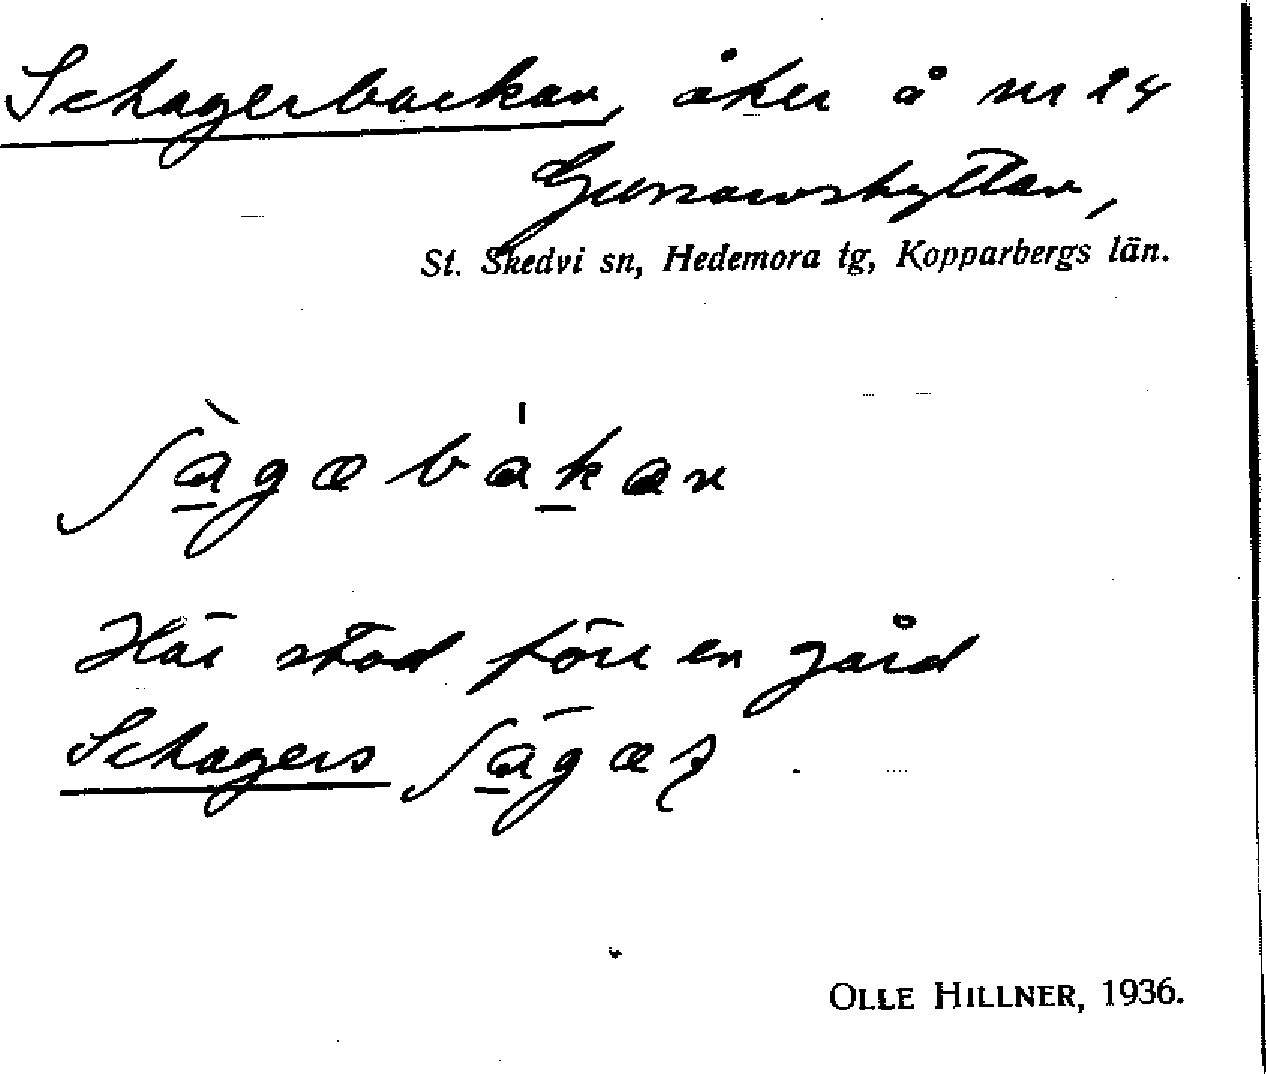 Schagerbackan, åker å nr 24
Gunnarshyttan,
St. Skedvi sn, Hedemora tg, Kopparbergs län.
ʃàgæbákan
Här stod förr en gård
Schagers ʃāgæʒ
OLLE HILLNER, 1936.